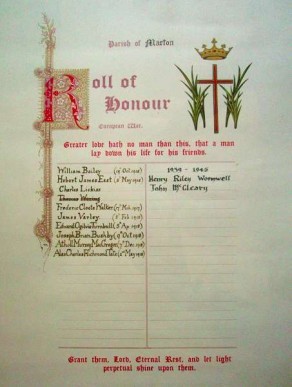 Parish of Marton
Roll of
Honour
European War.
Greater love hath no man than this, that a man
lay down his life for his friends.
William Bailey (19 Oct. 1918)
Hobert James East (5 May 1918)
Charles Lickiss
Thomas
Frederic Cloete Walker (17 Nov. 1917)
James Varley (5 Feb. 1918)
Edward Ogilvie Turnbull (3 Ap. 1918)
Joseph Brian Bushby (9 Oct. 1918)
Atholl Murray MacGregor (7 Dec. 1918)
Alan Charles Richmond
1939 - 1945
Henry Riley Wormwell
John McCleary
Grant them, Lord, Eternal Rest, and let light
perpetual shine upon them.